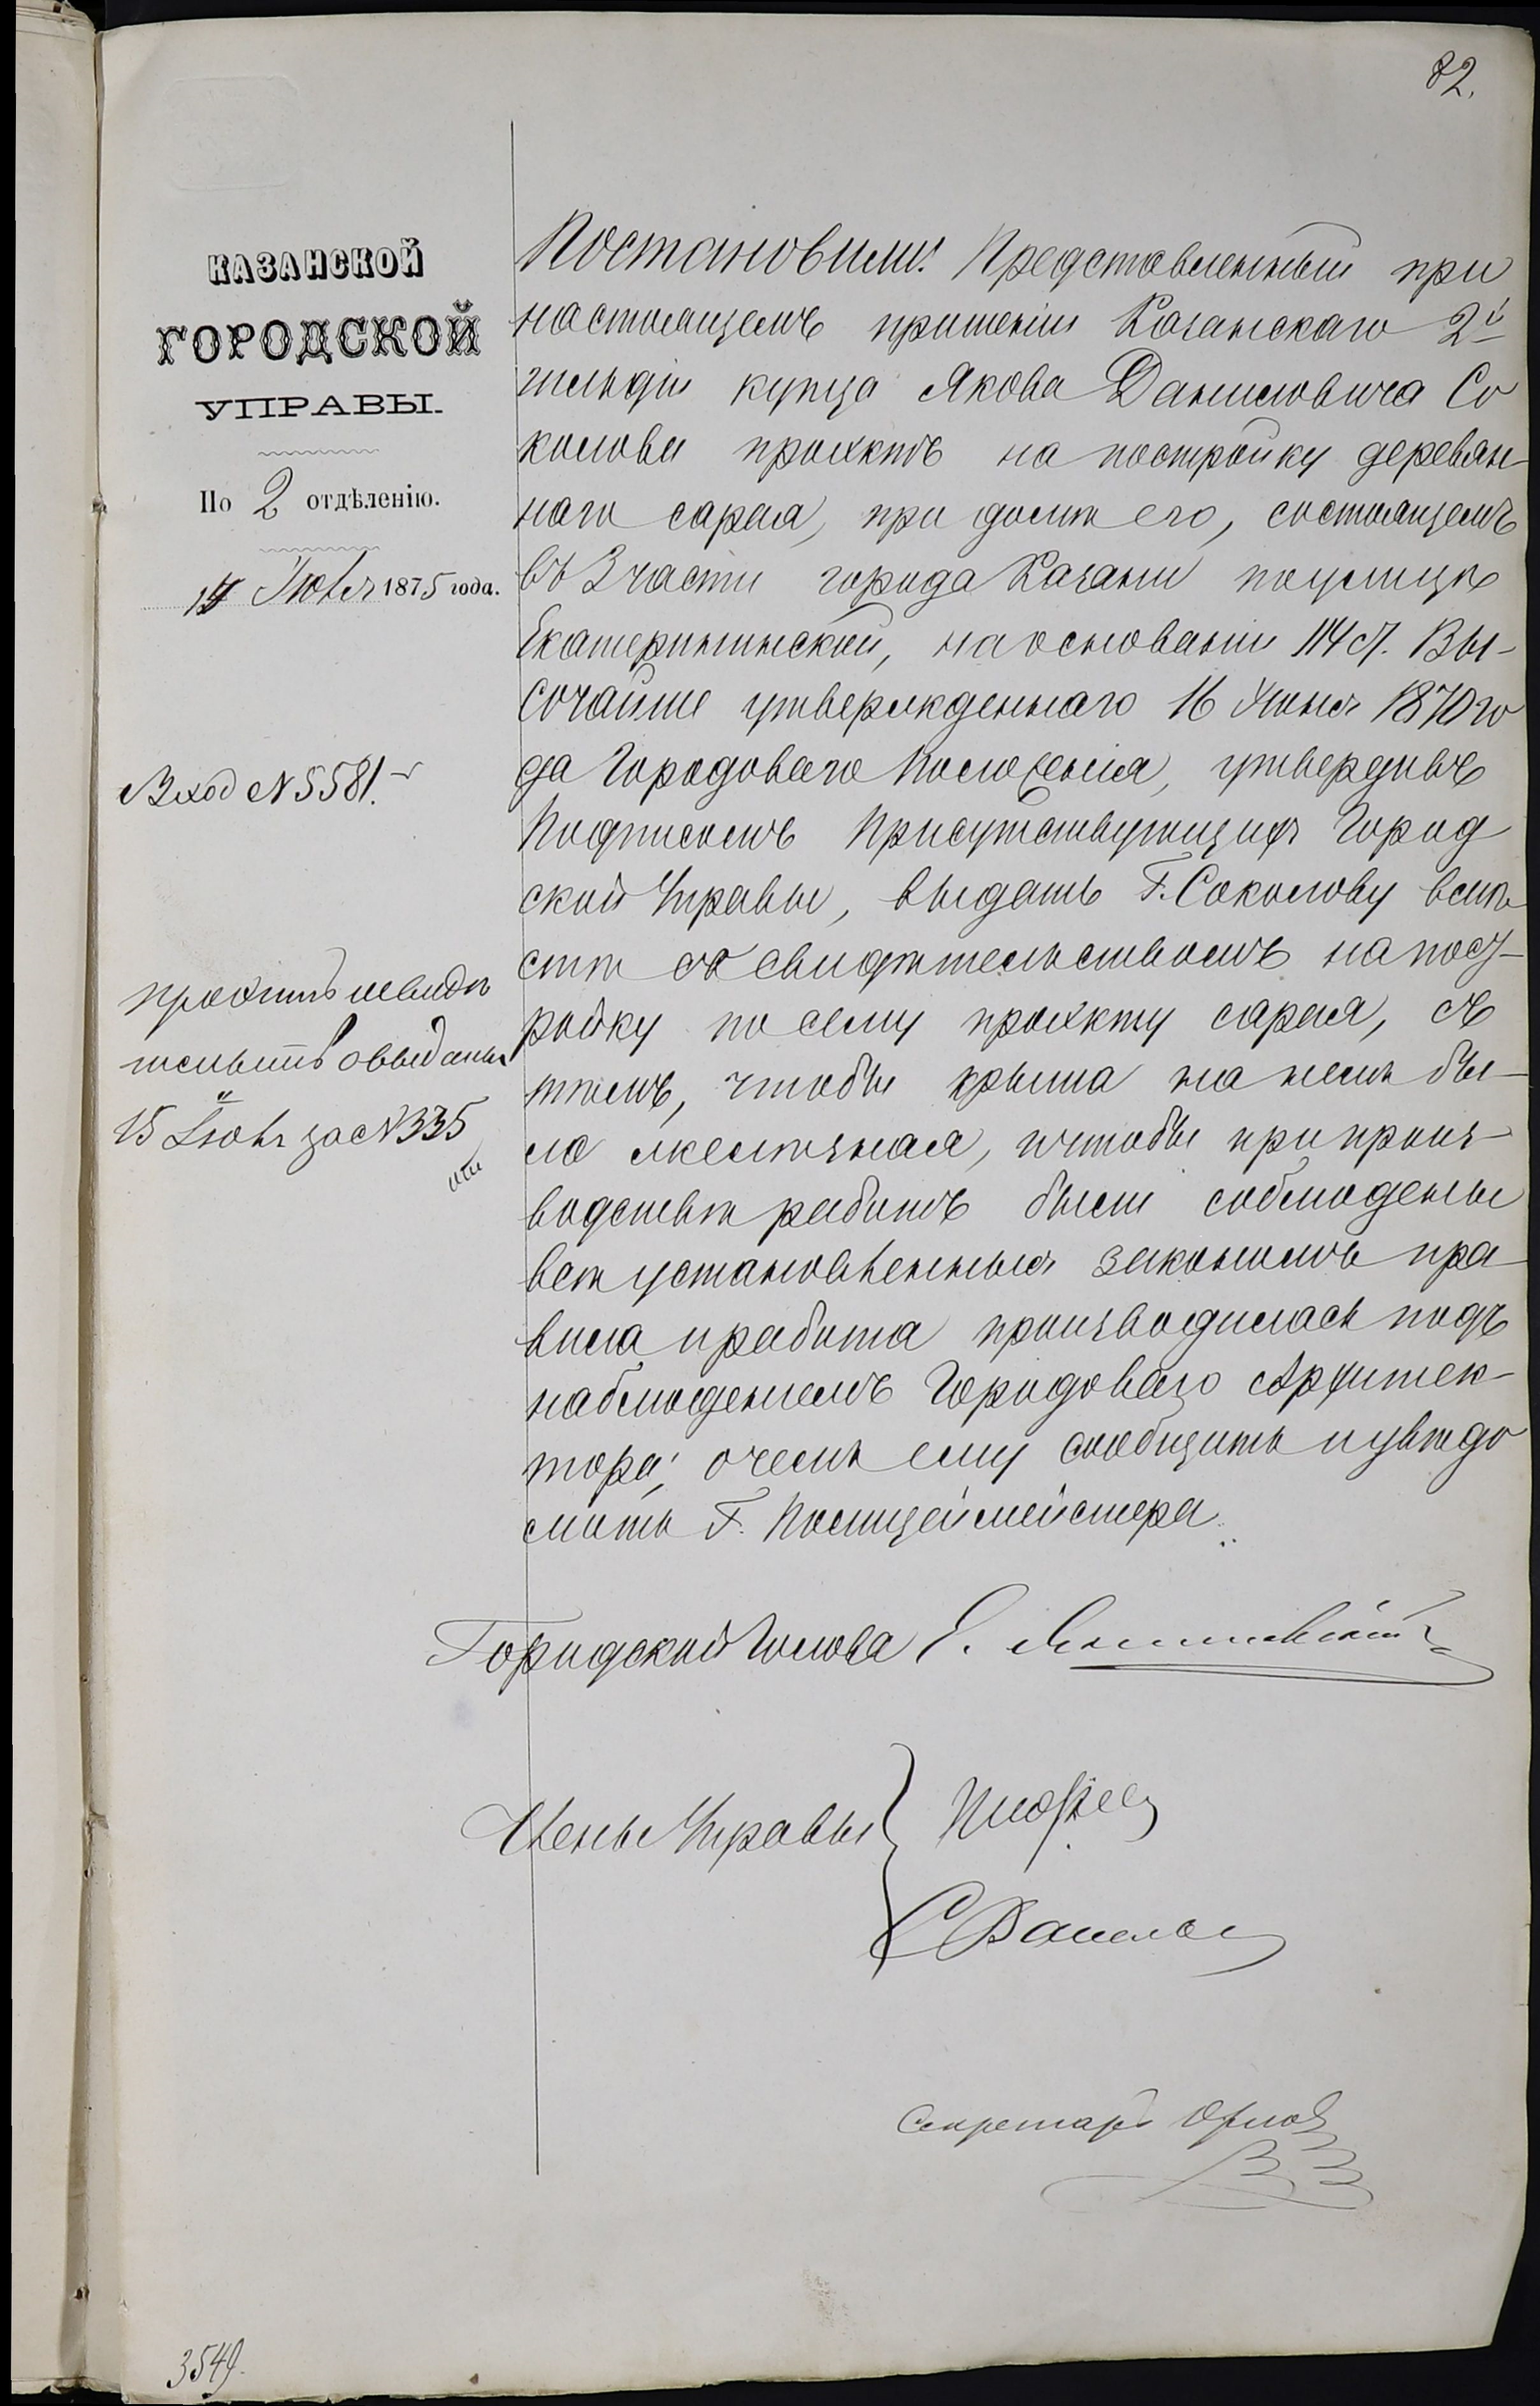 82.
КАЗАНСКОЙ
ГОРОДСКОЙ
УПРАВЫ.
По 2 отдѣленію.
Іюля 1875 года.
Вход № 5581.
проэктъ и свидѣ
тельство выданы
15 Іюля за № 335
Постановили: Представленный при
настоящемъ прошеніи Казанскаго 2й
гильдіи купца Якова Даниловича Со
колова проэктъ на постройку деревян
наго сарая, при домѣ его, состоящемъ
въ 3 части города Казани по улицѣ
Екатерининской, на основаніи 114 ст. Вы-
сочайше утвержденнаго 16 Іюня 1870 го
да Городоваго Положенія, утвердивъ
подписомъ Присутствующихъ Город
ской Управы, выдать Г. Соколову вмѣ
стѣ съ свидѣтельствомъ на пост-
ройку по сему проэкту сарая, съ
тѣмъ, чтобы крыша на немъ бы-
ла желѣзная, и чтобы при произ-
водствѣ работъ были соблюдены
всѣ установленныя закономъ пра-
вила и работа производилась подъ
наблюденіемъ Городоваго Архитек-
тора; о чемъ ему сообщить и увѣдо
мить Г. Полицеймейстера.
Городской Голова Е.
Члены Управы
Секретарь Орлов
3549.